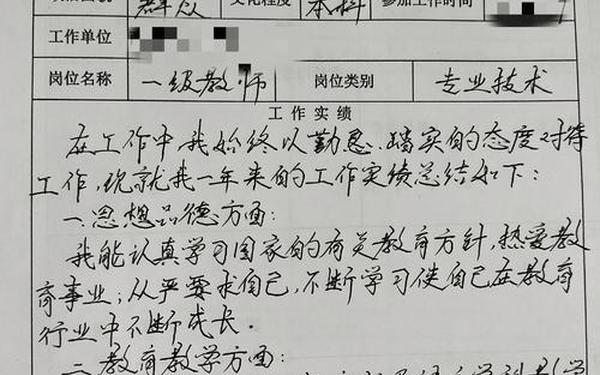 群众 文化程度 本科 参加工作时间
工作单位
岗位名称 一级教师 岗位类别 专业技术
工作实绩
在工作中,我始终以勤恳、踏实的态度对待
工作,现就我一年来的工作实绩总结如下:
一.思想品德方面:
我能认真学习国家的有关教育方针,热爱教
育事业;从严要求自己,不断学习使自己在教育
行业中不断成长.
二.教育教学方面: